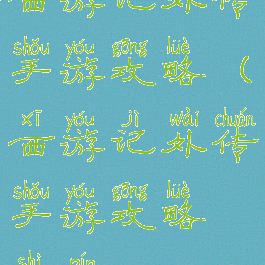 西游记外传
shǒu yóu gōng lüè
手游攻略（
xī yóu jì wài chuán
西游记外传
shǒu yóu gōng lüè
手游攻略
shì pín